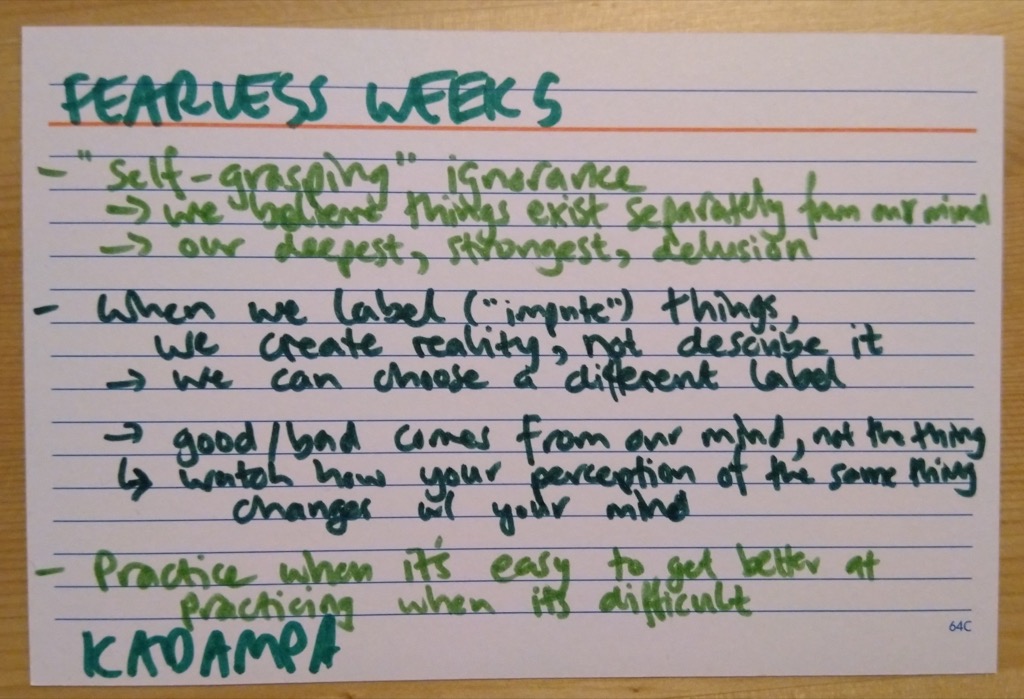 FEARLESS WEEKS
- "self-grasping" ignorance
→ we believe things exist separately from our mind
→ our deepest, strongest, delusion
- When we label ("impute") things,
we create reality, not describe it
→ we can choose a different label
→ good/bad comes from our mind, not the thing
↳ watch how your perception of the same thing
changes w/ your mind
- Practice when it's easy to get better at
practicing when its difficult
64C
KADAMPA